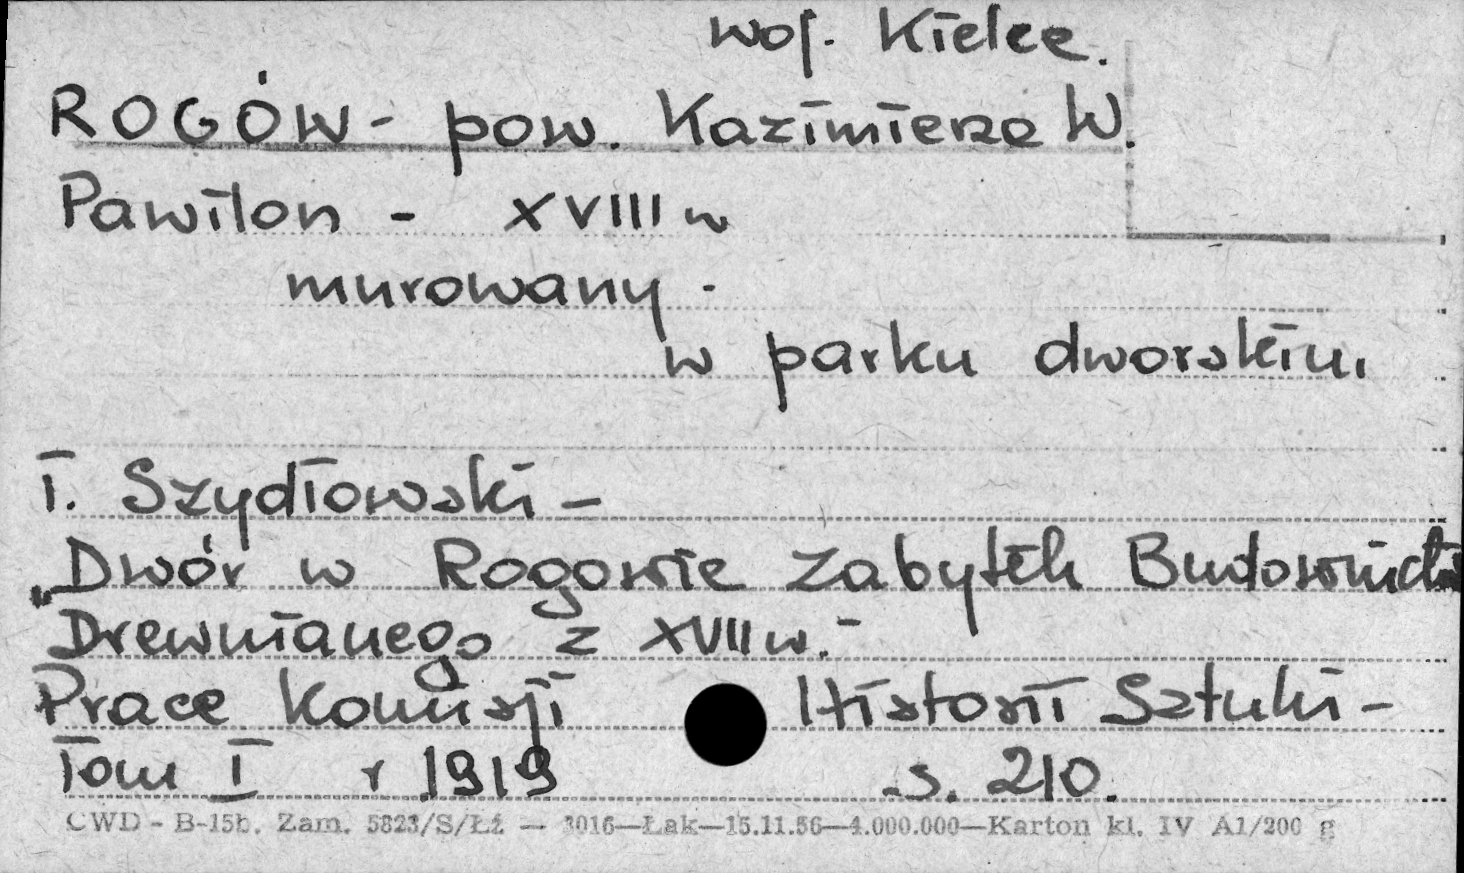 woj. Kielce.
ROGÓW - pow. Kazimierza W.
Pawilon - XVIII w
murowany -
w parku dworskim.
T. Szydłowski -
„Dwór w Rogowie Zabytek Budownictwa
Drewnianego z XVII w. -
Prace Komisji Historii Sztuki -
Tom I r 1919 s. 210.
CWD - B-15b. Zam. 5823/S/Łź — 3016—Łak—15.11.56—4.000.000—Karton kl. IV A1/200 g